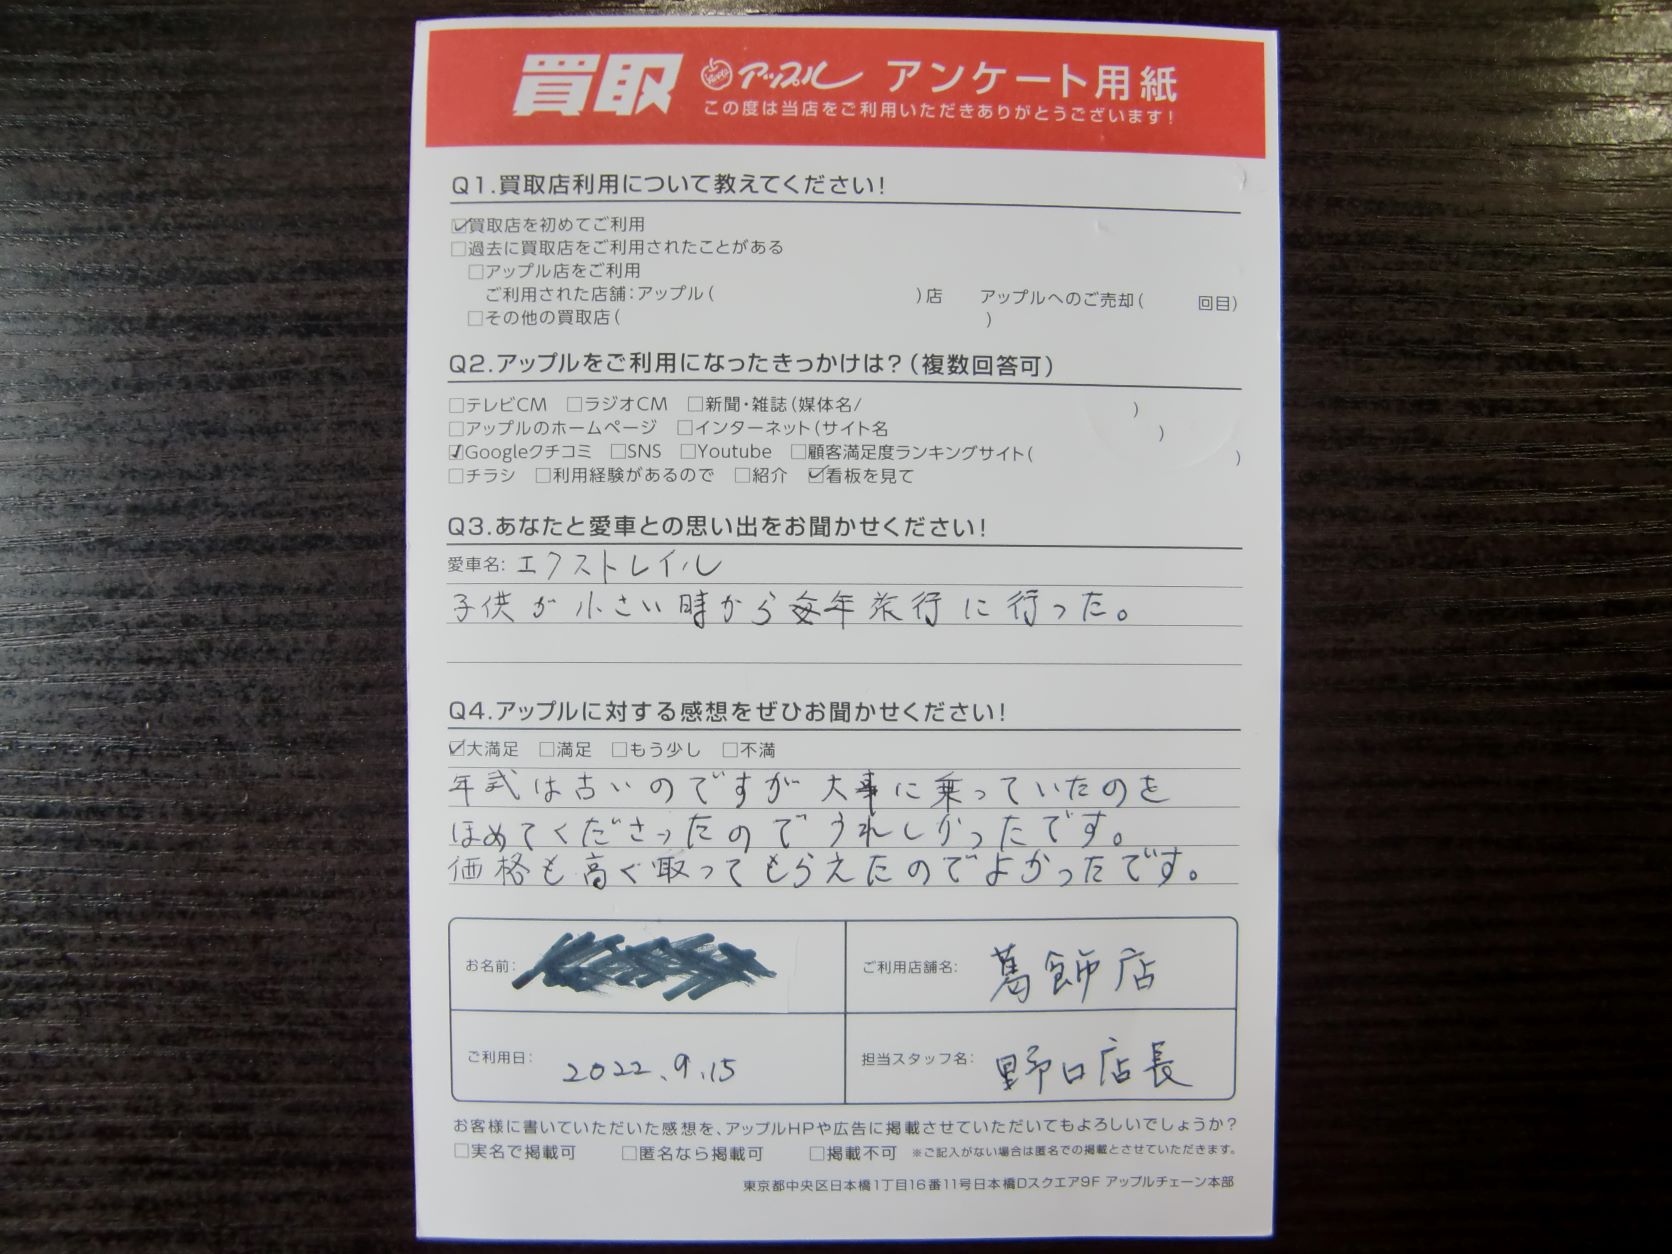 買取 アップル アンケート用紙
この度は当店をご利用いただきありがとうございます！
Q1.買取店利用について教えてください！
☑買取店を初めてご利用
□過去に買取店をご利用されたことがある
□アップル店をご利用
ご利用された店舗：アップル（ ）店 アップルへのご売却（ 回目）
□その他の買取店（ ）
Q2.アップルをご利用になったきっかけは？（複数回答可）
□テレビCM □ラジオCM □新聞・雑誌（媒体名/ ）
□アップルのホームページ □インターネット（サイト名 ）
☑Googleクチコミ □SNS □Youtube □顧客満足度ランキングサイト（ ）
□チラシ □利用経験があるので □紹介 ☑看板を見て
Q3.あなたと愛車との思い出をお聞かせください！
愛車名：エクストレイル
子供が小さい時から毎年旅行に行った。
Q4.アップルに対する感想をぜひお聞かせください！
☑大満足 □満足 □もう少し □不満
年式は古いのですが大事に乗っていたのを
ほめてくださったのでうれしかったです。
価格も高く取ってもらえたのでよかったです。
お名前： ご利用店舗名：葛飾店
ご利用日：2022.9.15 担当スタッフ名：野口店長
お客様に書いていただいた感想を、アップルHPや広告に掲載させていただいてもよろしいでしょうか？
□実名で掲載可 □匿名なら掲載可 □掲載不可 ※ご記入がない場合は匿名での掲載とさせていただきます。
東京都中央区日本橋1丁目16番11号日本橋Dスクエア9F アップルチェーン本部